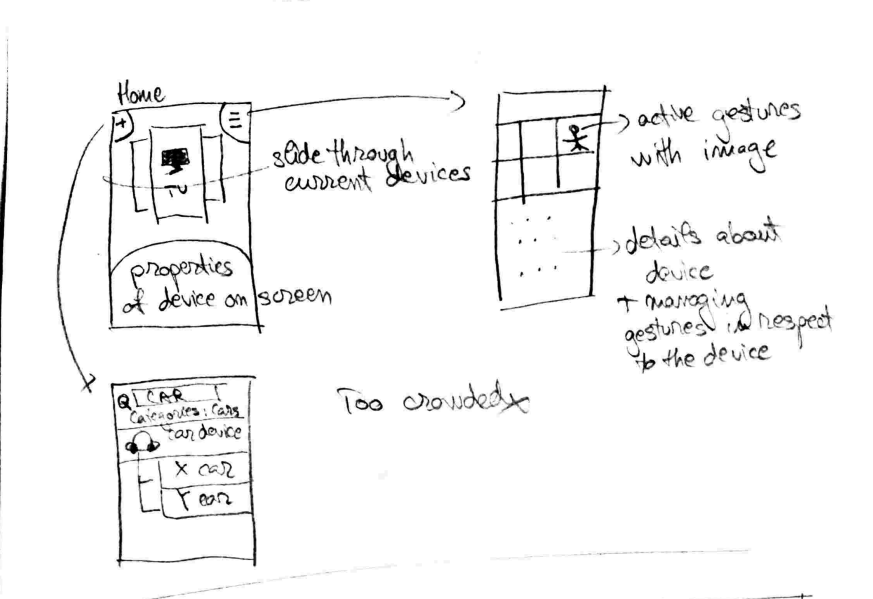 Home
+
TV
slide through
current devices
properties
of device on screen
active gestures
with image
details about
device
+ managing
gestures in respect
to the device
Q CAR
Categories: Cars
Car device
X car
Y car
Too crowded x